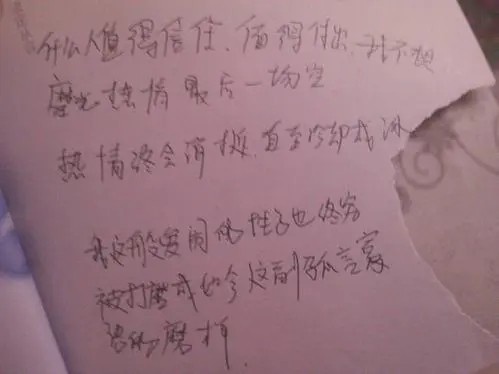 什么人值得信任、值得付出、我不想
磨光热情最后一场空
热情终会消耗、直至冷却成冰
我这般爱闹的性子也终究
被打磨成如今这副孤言寡
语的模样.